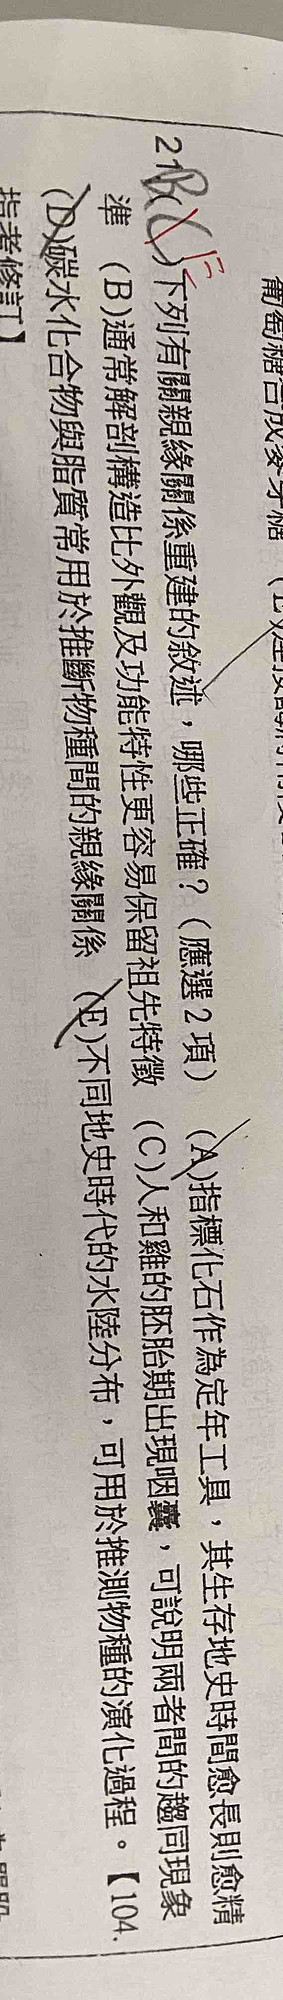 葡萄糖合成麥芽糖
21. BC E ( )下列有關親緣關係重建的敘述，哪些正確？（應選 2 項） (A)指標化石作為定年工具，其生存地史時間愈長則愈精
準 (B)通常解剖構造比外觀及功能特性更容易保留祖先特徵 (C)人和雞的胚胎期出現咽囊，可說明兩者間的趨同現象
(D)碳水化合物與脂質常用於推斷物種間的親緣關係 (E)不同地史時代的水陸分布，可用於推測物種的演化過程。【104.
指考修訂】